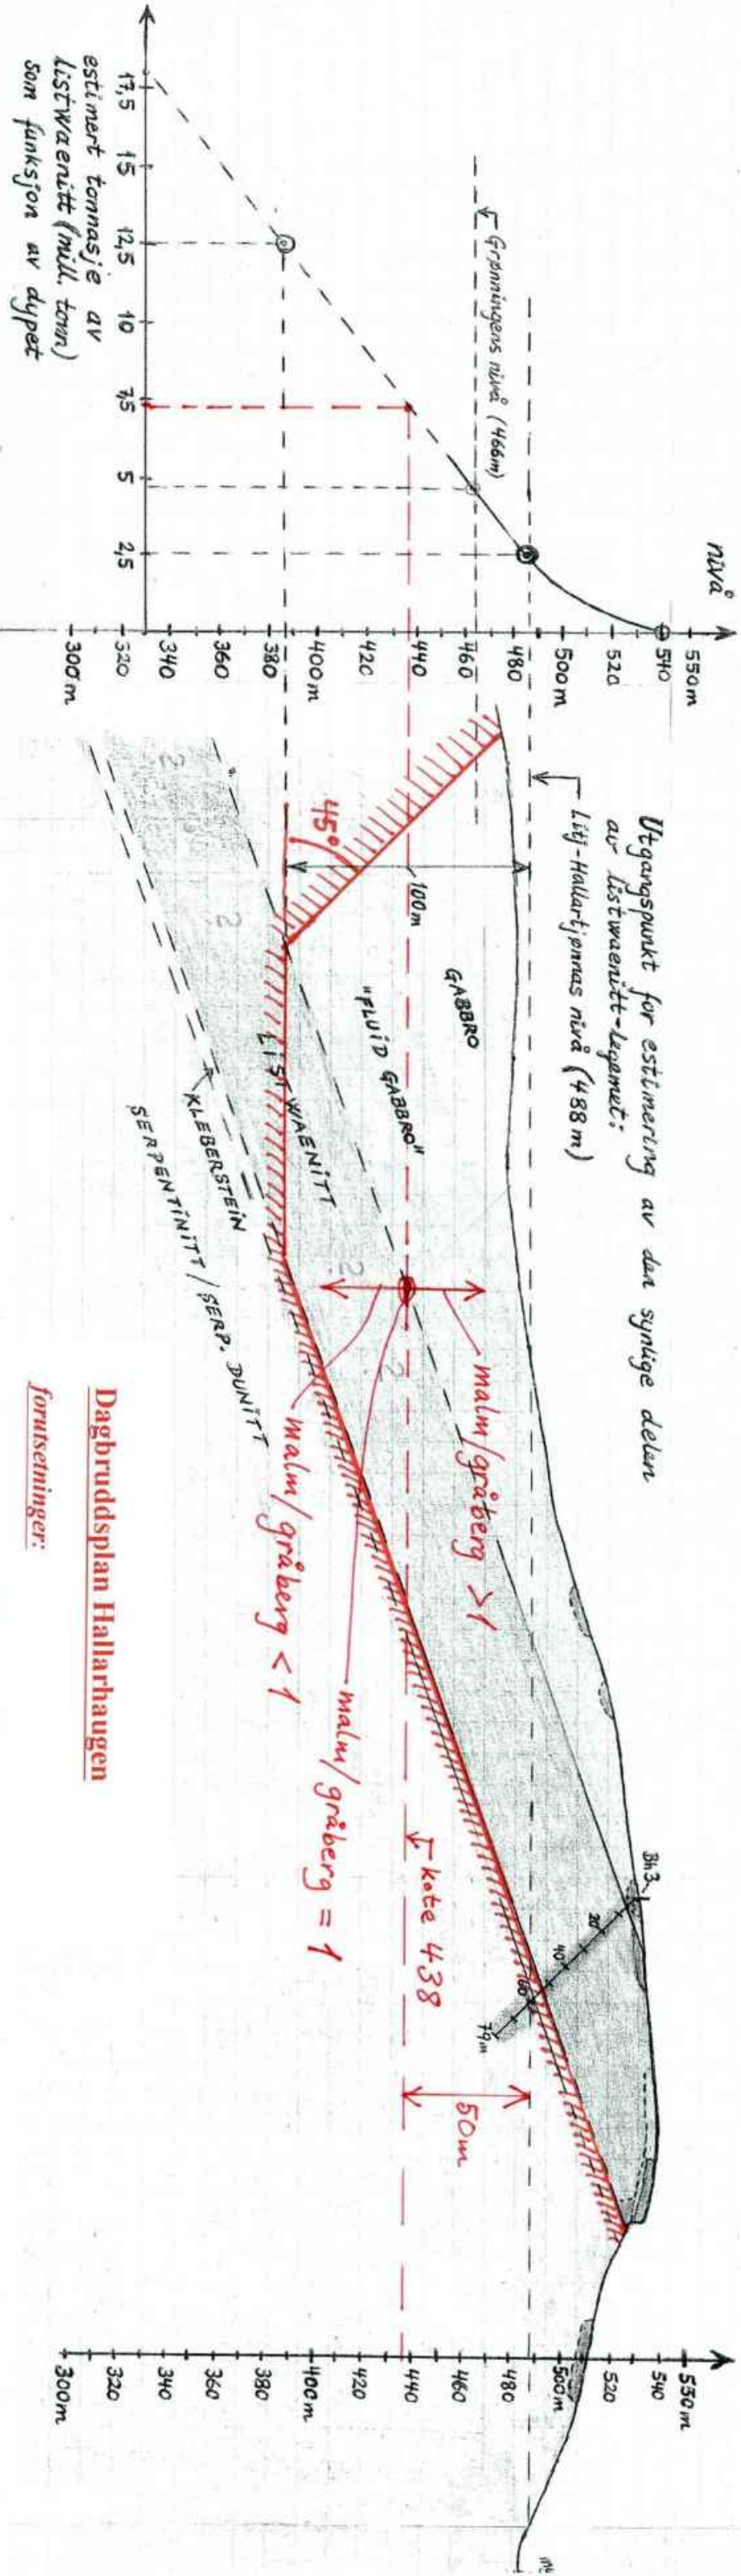 nivå
550m
540
520
500m
480
460
440
420
400m
380
360
340
320
300m
17,5
15
12,5
10
7,5
5
2,5
estimert tonnasje av
listwaenitt (mill. tonn)
som funksjon av dypet
Grønningens nivå (466m)
Utgangspunkt for estimering av den synlige delen
av listwaenitt-legemet:
Litj-Hallartjønnas nivå (488m)
100m
45°
GABBRO
"FLUID GABBRO"
LISTWAENITT
KLEBERSTEIN
SERPENTINITT / SERP. DUNITT
?
?
?
?
malm/gråberg >1
malm/gråberg < 1
malm/gråberg = 1
kote 438
50m
Bh3
20
40
60
79m
550m
540
520
500m
480
460
440
420
400m
380
360
340
320
300m
Dagbruddsplan Hallarhaugen
forutsetninger: